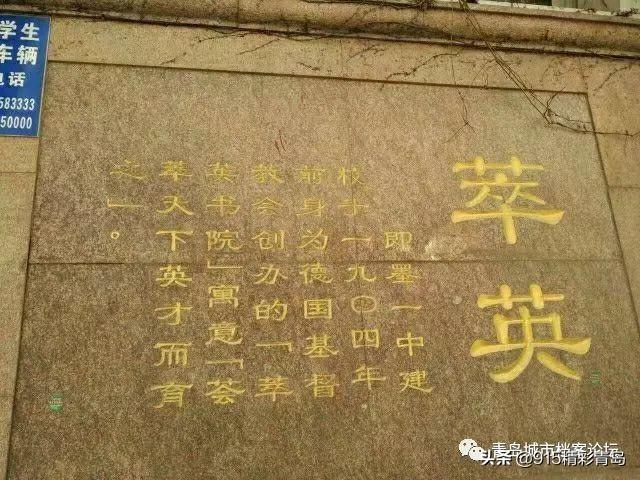 萃英
即墨一中建
校于一九〇四年
前身为德国基督
教会创办的「萃
英书院」寓意「荟
萃天下英才而育
之」。
学生
车辆
电话
583333
50000
青岛城市档客论坛
头条 @915精彩青岛